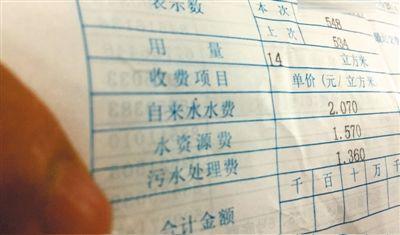 表示数 本次 548
上次 534
用量 14 立方米
收费项目 单价(元/立方米)
自来水水费 2.070
水资源费 1.570
污水处理费 1.360
千百十万千
合计金额